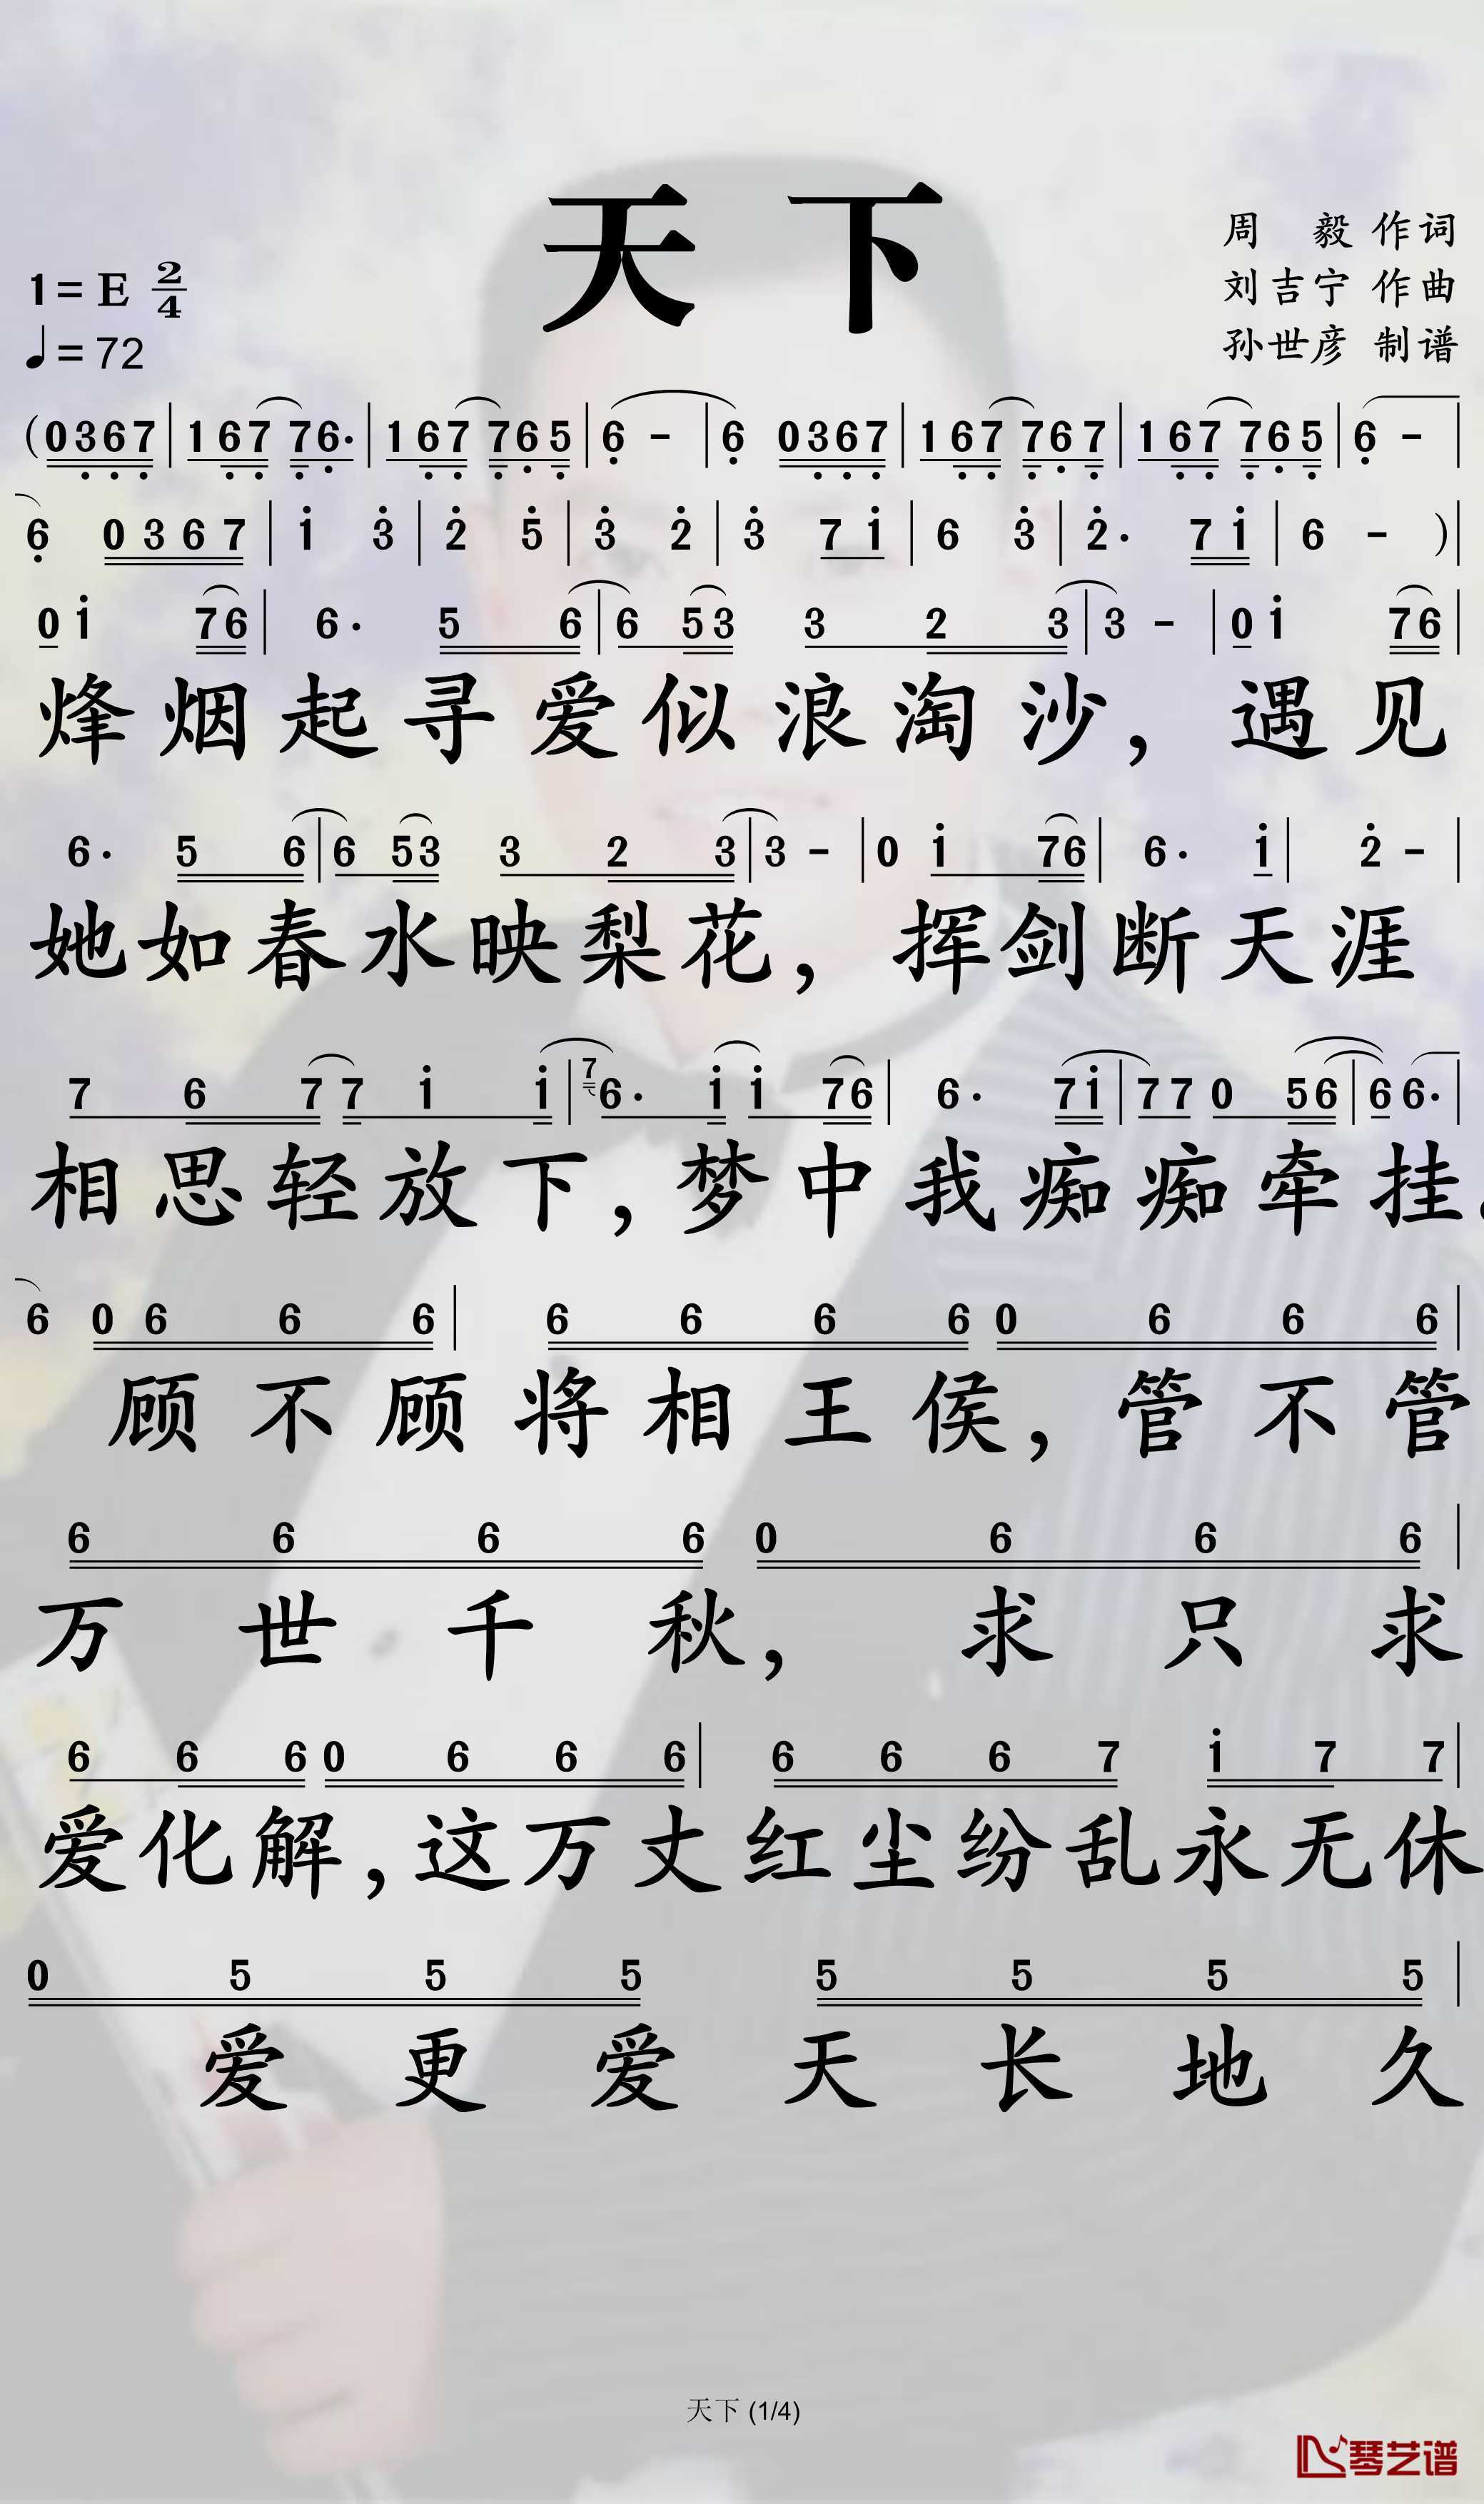 天 下
周 毅 作词
1=E 2/4
刘吉宁 作曲
♩=72
孙世彦 制谱
(0367|167 76·|167 765|6 -|6 0367|167 767|167 765|6 -|
6 0367|1 3|2 5|3 2|3 71|6 3|2· 71|6 - )|
01 76|6· 5 6|6 53 3 2 3|3 -|01 76|
烽烟起寻爱似浪淘沙，遇见
6· 5 6|6 53 3 2 3|3 -|0 1 76|6· 1|2 -|
她如春水映梨花，挥剑断天涯
7 6 77 1 1|7 6· 11 76|6· 71|77 0 56|66·|
相思轻放下，梦中我痴痴牵挂。
6 06 6 6|6 6 6 60 6 6 6|
顾不顾将相王侯，管不管
6 6 6 6 0 6 6 6|
万世千秋，求只求
6 6 60 6 6 6|6 6 6 7 1 7 7|
爱化解，这万丈红尘纷乱永无休
0 5 5 5 5 5 5 5|
爱更爱天长地久
天下 (1/4)
琴艺谱